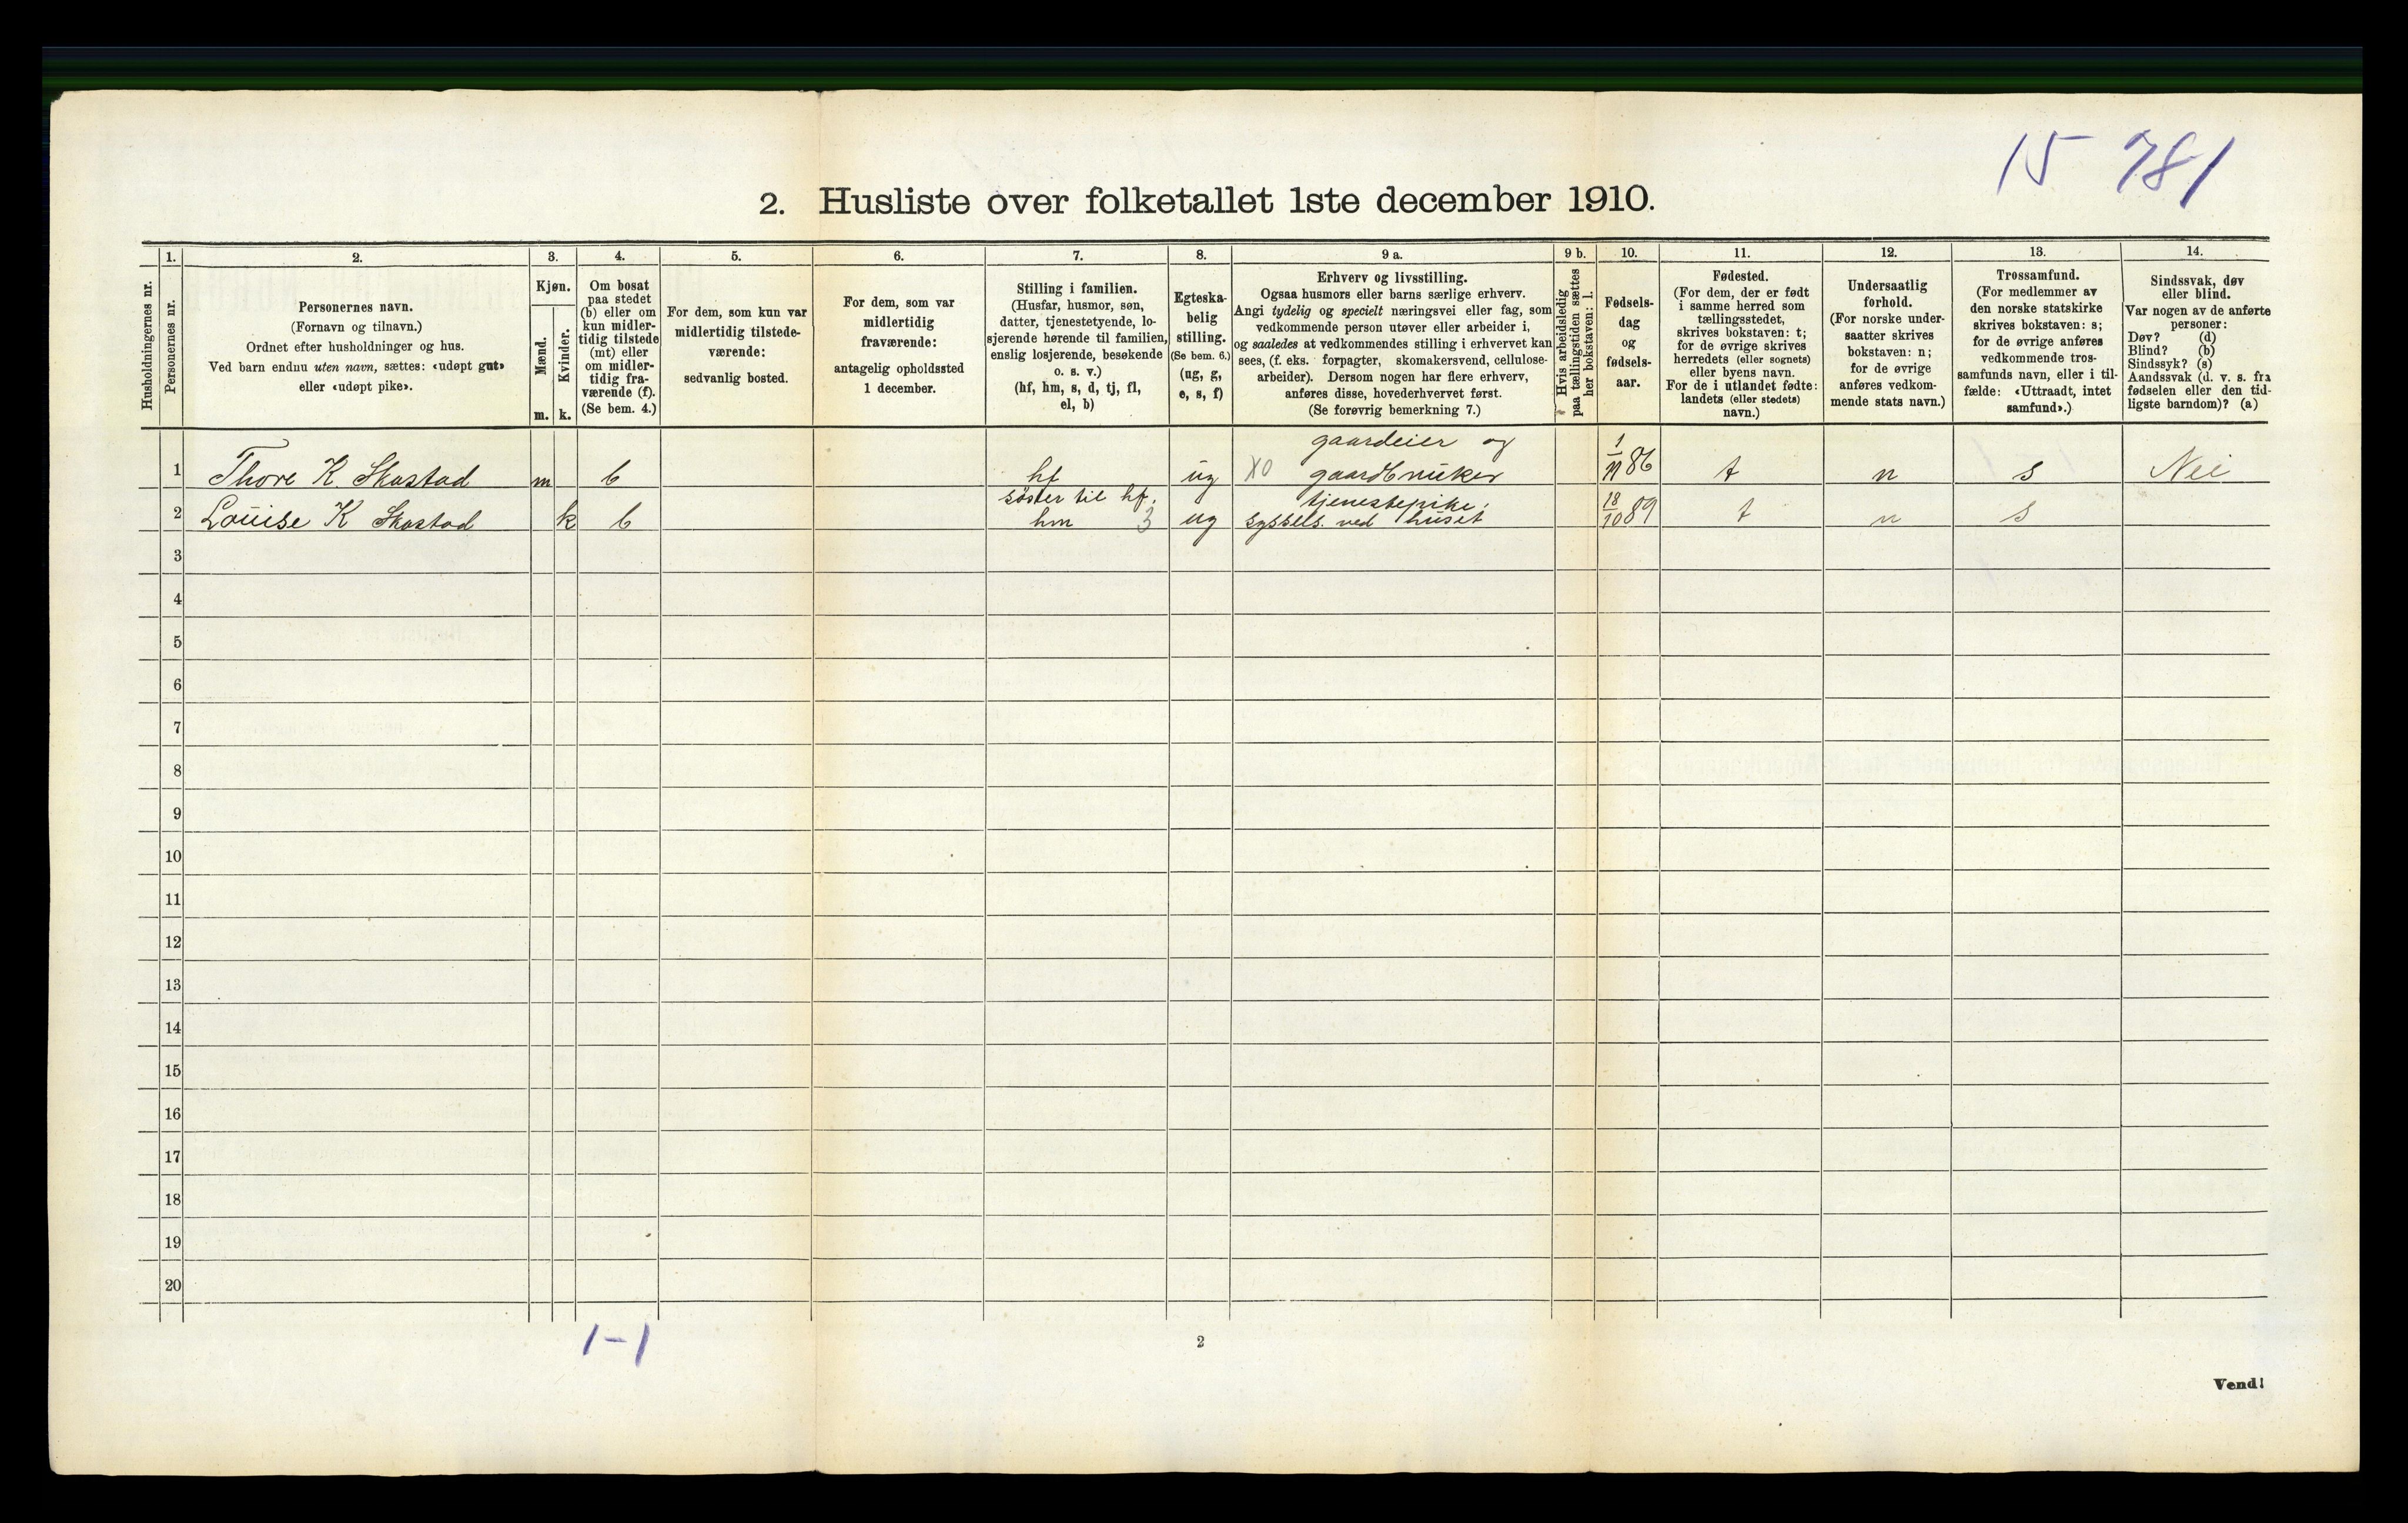 15 781
2. Husliste over folketallet 1ste december 1910.
Husholdningernes nr.
1.
Personernes nr.
2.
Personernes navn.
(Fornavn og tilnavn.)
Ordnet efter husholdninger og hus.
Ved barn endnu uten navn, sættes: «udøpt gut»
eller «udøpt pike».
3.
Kjøn.
Mænd.
Kvinder.
m. k.
4.
Om bosat
paa stedet
(b) eller om
kun midler-
tidig tilstede
(mt) eller
om midler-
tidig fra-
værende (f).
(Se bem. 4.)
5.
For dem, som kun var
midlertidig tilstede-
værende:
sedvanlig bosted.
6.
For dem, som var
midlertidig
fraværende:
antagelig opholdssted
1 december.
7.
Stilling i familien.
(Husfar, husmor, søn,
datter, tjenestetyende, lo-
sjerende hørende til familien,
enslig losjerende, besøkende
o. s. v.)
(hf, hm, s, d, tj, fl,
el, b)
8.
Egteska-
belig
stilling.
(Se bem. 6.)
(ug, g,
e, s, f)
9 a.
Erhverv og livsstilling.
Ogsaa husmors eller barns særlige erhverv.
Angi tydelig og specielt næringsvei eller fag, som
vedkommende person utøver eller arbeider i,
og saaledes at vedkommendes stilling i erhvervet kan
sees, (f. eks. forpagter, skomakersvend, cellulose-
arbeider). Dersom nogen har flere erhverv,
anføres disse, hovederhvervet først.
(Se forøvrig bemerkning 7.)
9 b.
Hvis arbeidsledig
paa tællingstiden sættes
her bokstaven: l.
10.
Fødsels-
dag
og
fødsels-
aar.
11.
Fødested.
(For dem, der er født
i samme herred som
tællingsstedet,
skrives bokstaven: t;
for de øvrige skrives
herredets (eller sognets)
eller byens navn.
For de i utlandet fødte:
landets (eller stedets)
navn.)
12.
Undersaatlig
forhold.
(For norske under-
saatter skrives
bokstaven: n;
for de øvrige
anføres vedkom-
mende stats navn.)
13.
Trossamfund.
(For medlemmer av
den norske statskirke
skrives bokstaven: s;
for de øvrige anføres
vedkommende tros-
samfunds navn, eller i til-
fælde: «Uttraadt, intet
samfund».)
14.
Sindssvak, døv
eller blind.
Var nogen av de anførte
personer:
Døv? (d)
Blind? (b)
Sindssyk? (s)
Aandssvak (d. v. s. fra
fødselen eller den tid-
ligste barndom)? (a)
gaardeier og
1 Thore K. Skastad m b hf ug X0 gaardbruker 1/11 86 t n s Nei
søster til hf. tjenestepike;
2 Louise K Skastad k b hm 3 ug syssels. ved huset 18/10 89 t n s
3
4
5
6
7
8
9
10
11
12
13
14
15
16
17
18
19
20
1-1
2
Vend!